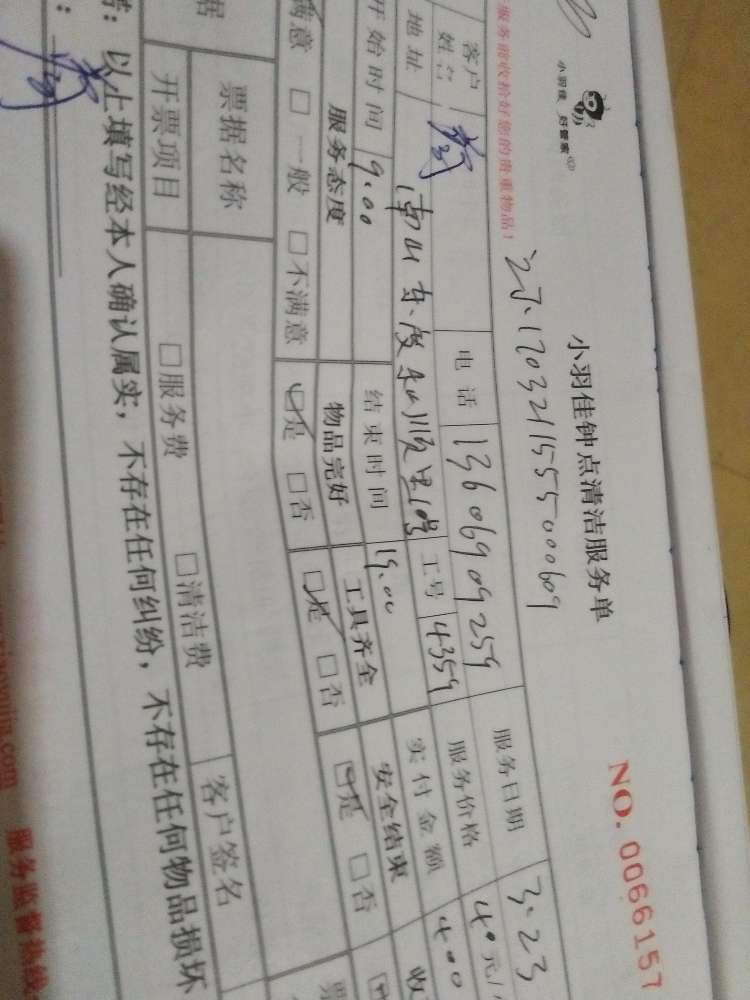 小羽佳 好管家
小羽佳钟点清洁服务单
NO. 0066157
170321155500609
服务前收拾好您的贵重物品!
客户姓名
电话 13606909259
服务日期 3.23
地址
工号 4359
服务价格 40元/
开始时间 9:00
结束时间 19:00
实付金额 400
收
服务态度
物品完好
工具齐全
安全结束
满意 □一般 □不满意
□是 □否
□是 □否
□是 □否
据
票据名称
客户签名
票
开票项目
□服务费
□清洁费
: 以上填写经本人确认属实，不存在任何纠纷，不存在任何物品损坏
服务监督热线